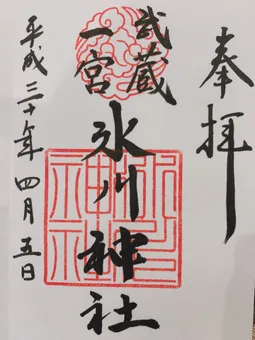 奉拝
武蔵
一宮
氷川神社
平成三十年四月五日